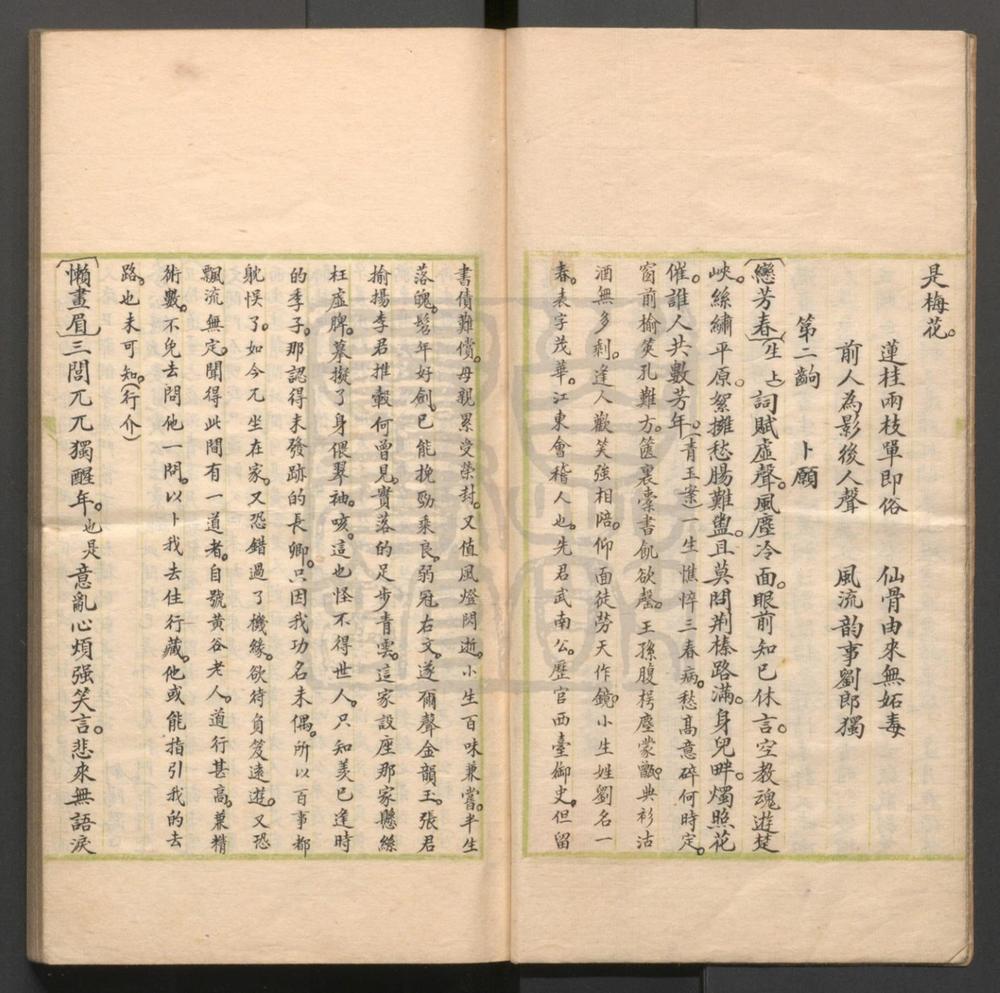 是梅花。
蓮桂兩枝單即俗　仙骨由來無妬毒
前人為影後人聲　風流韵事劉郎獨
第二齣　卜願
戀芳春（生上）詞賦虛聲。風塵冷面。眼前知己休言。空教魂遊楚
峽。絲繡平原。絮擁愁腸難盥。且莫問荆榛路滿。身兒畔。燭照花
催。誰人共數芳年。（青玉案）一生憔悴三春病。愁髙意碎何時定。
窗前榆莢孔難方。篋裏囊書飢欲罄。王孫腹枵塵蒙甑。典衫沽
酒無多剩。逢人歡笑強相陪。仰面徒勞天作鏡。小生姓劉名一
春。表字茂華。江東會稽人也。先君武南公。歷官西臺御史。但留
書債難償。母親累受榮封。又值風燈閃逝。小生百味兼嘗。半生
落魄。髫年好劍。已能挽勁乘良。弱冠右文。遂爾聲金韻玉。張君
揄揚李君推轂。何曾見實落的足步青雲。這家設座那家懸絲
枉虛脾。摹擬了身偎翠袖。咳。這也怪不得世人。只知羨已逢時
的季子。那認得未發跡的長卿。只因我功名未偶。所以百事都
躭悞了。如今兀坐在家。又恐錯過了機緣。欲待負笈遠遊。又恐
飄流無定。聞得此間有一道者。自號黃谷老人。道行甚高。兼精
術數。不免去問他一問。以卜我去住行藏。他或能指引我的去
路。也未可知。（行介）
懶畫眉三閭兀兀獨醒年。也是意亂心煩强笑言。悲來無語淚